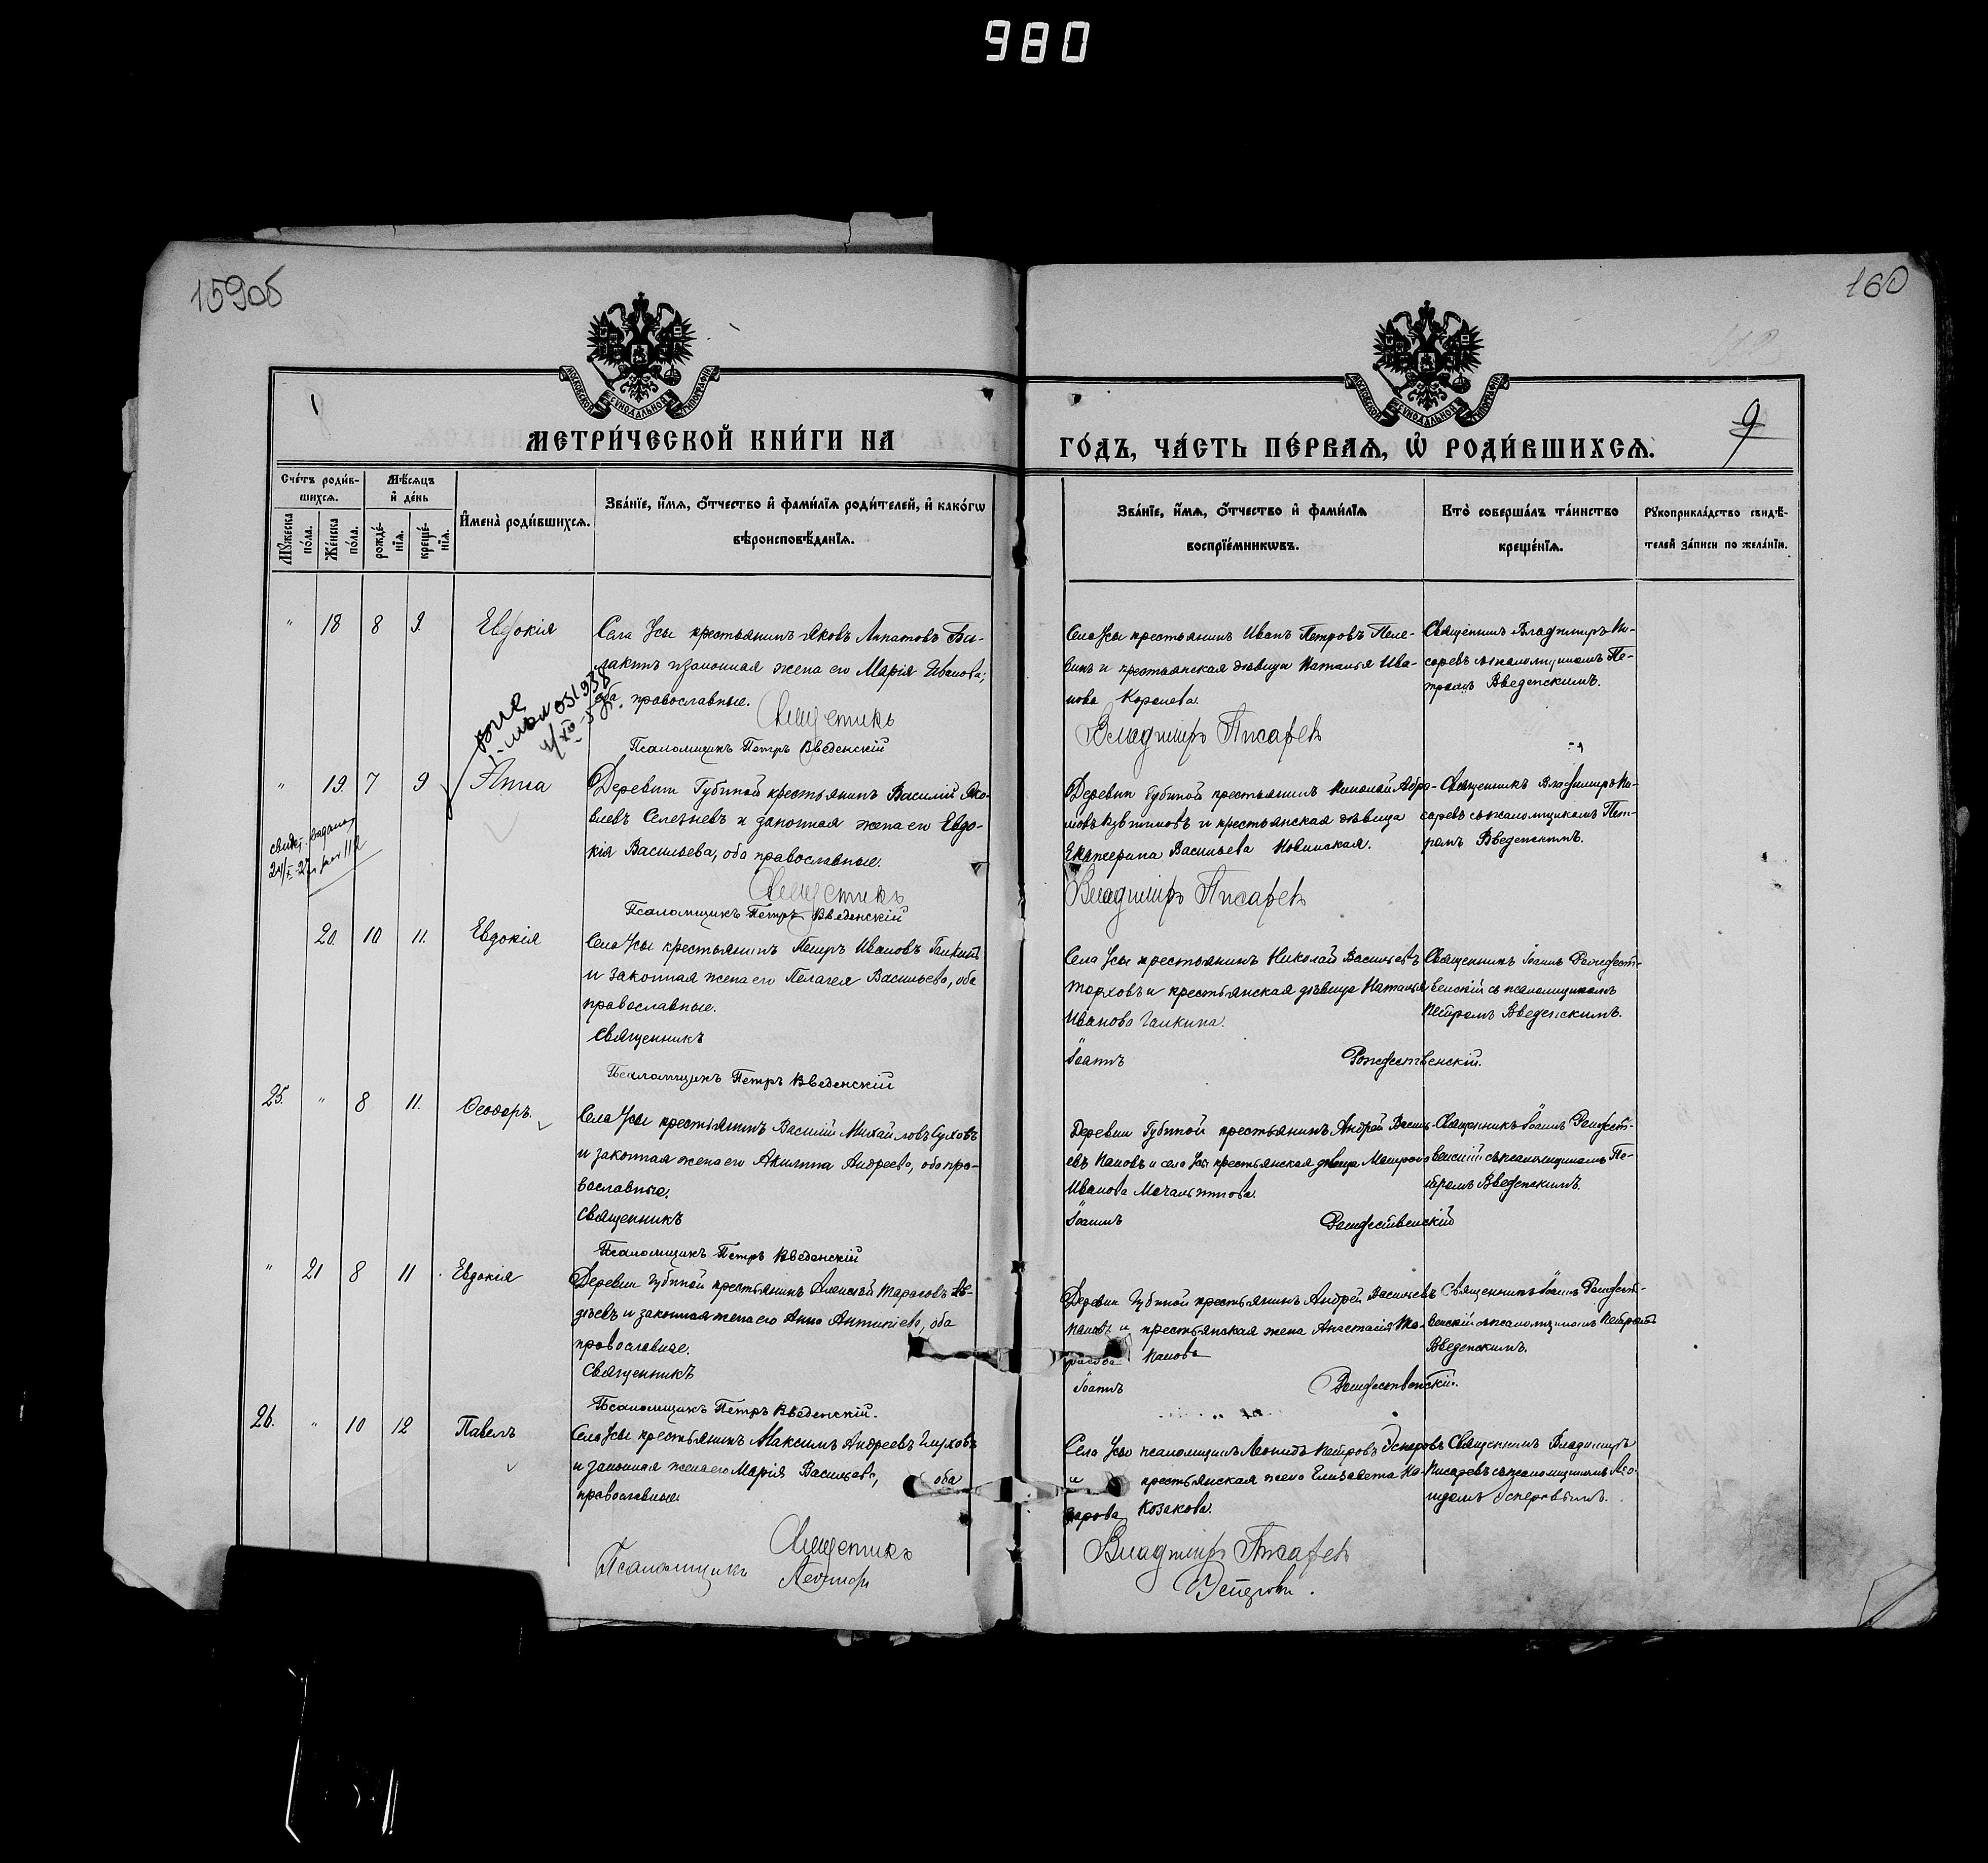 980
159об
160
МОСКОВСКОЙ СѴНОДАЛЬНОЙ ТИПОГРАФІИ
МОСКОВСКОЙ СѴНОДАЛЬНОЙ ТИПОГРАФІИ
9
МЕТРИ́ЧЕСКОЙ КНИ́ГИ НА
ГО́ДЪ, ЧА́СТЬ ПЕ́РВАѦ, Ѽ РОДИ́ВШИХСѦ.
Сче́тъ роди́в-
шихсѧ.
Мѣ́сѧцъ
и де́нь
Мꙋ́жеска
по́ла.
Же́нска
по́ла.
рожде́-
нїѧ.
креще́-
нїѧ.
И҆мена̀ роди́вшихсѧ.
Зва́нїе, и҆́мѧ, ѻ҆́тчество и҆ фами́лїѧ роди́телей, и҆ како́гѡ
вѣроисповѣ́данїѧ.
Зва́нїе, и҆́мѧ, ѻ҆́тчество и҆ фами́лїѧ
воспрїе́мникѡвъ.
Кто̀ соверша́лъ та́инство
креще́нїѧ.
Рꙋкоприкла́дство свидѣ́-
телей за́писи по жела́нїю.
" 18 8 9. Евдокія
Села Усы крестьянинъ Яковъ
и законная жена его Марія Иванова;
оба православные.
Священникъ
Псаломщикъ Петръ Введенскій
Села Усы крестьянинъ Иванъ Петровъ Пеле-
винъ и крестьянская дѣвица Наталья Ива-
нова Королева.
Владиміръ Писарев
Священникъ Владиміръ Пи-
саревъ съ псаломщикомъ Пе-
тромъ Введенскимъ.
" 19. 7 9 Анна
свидѣт. выдано
Деревни Губиной крестьянинъ Василій Яко-
влевъ Селезневъ и законная жена его Евдо-
кія Васильева, оба православные.
Священникъ
Псаломщикъ Петръ Введенскій
Деревни Губиной крестьянинъ Николай Абра-
мовъ и крестьянская дѣвица
Екатерина Васильева
Владиміръ Писарев
Священникъ Владиміръ Пи-
саревъ съ псаломщикомъ Пет-
ромъ Введенскимъ.
20. 10 11. Евдокія
Села Усы крестьянинъ Петръ Ивановъ Галкинъ
и законная жена его Пелагея Васильева, оба
православные.
Священникъ
Псаломщикъ Петръ Введенскій
Села Усы крестьянинъ Николай Васильевъ
Торховъ и крестьянская дѣвица Наталья
Иванова Галкина.
Іоаннъ Рождественскій.
Священникъ Іоаннъ Рождест-
венскій съ псаломщикомъ
Петромъ Введенскимъ.
25. " 8 11. Ѳеодоръ.
Села Усы крестьянинъ Василій Михайловъ Суховъ
и законная жена его Акилина Андреева, оба пра-
вославные.
Священникъ
Псаломщикъ Петръ Введенскій
Деревни Губиной крестьянинъ Андрей Василь-
евъ Пановъ и села Усы крестьянская дѣвица Матрона
Иванова
Іоаннъ Рождественскій
Священникъ Іоаннъ Рождест-
венскій съ псаломщикомъ Пе-
тромъ Введенскимъ.
" 21 8 11 Евдокія
Деревни Губиной крестьянинъ Алексѣй Тарасовъ Ав-
дѣевъ и законная жена его Анна Антипіева, оба
православные.
Священникъ
Псаломщикъ Петръ Введенскій.
Деревни Губиной крестьянинъ Андрей Васильевъ
Пановъ и крестьянская жена Анастасія Та-
расова Панова
Іоаннъ Рождественскій.
Священникъ Іоаннъ Рождест-
венскій съ псаломщикомъ Петромъ
Введенскимъ.
26. " 10 12 Павелъ
Села Усы крестьянинъ Максимъ Андреевъ Глуховъ
и законная жена его Марія Васильева, оба
православные
Священникъ
Псаломщикъ Леонидъ
Села Усы псаломщикъ Леонидъ Петровъ Эсперовъ
и крестьянская жена Елизавета На-
зарова Козакова.
Владиміръ Писарев
Эсперовъ.
Священникъ Владиміръ
Писаревъ съ псаломщикомъ Лео-
нидомъ Эсперовымъ.